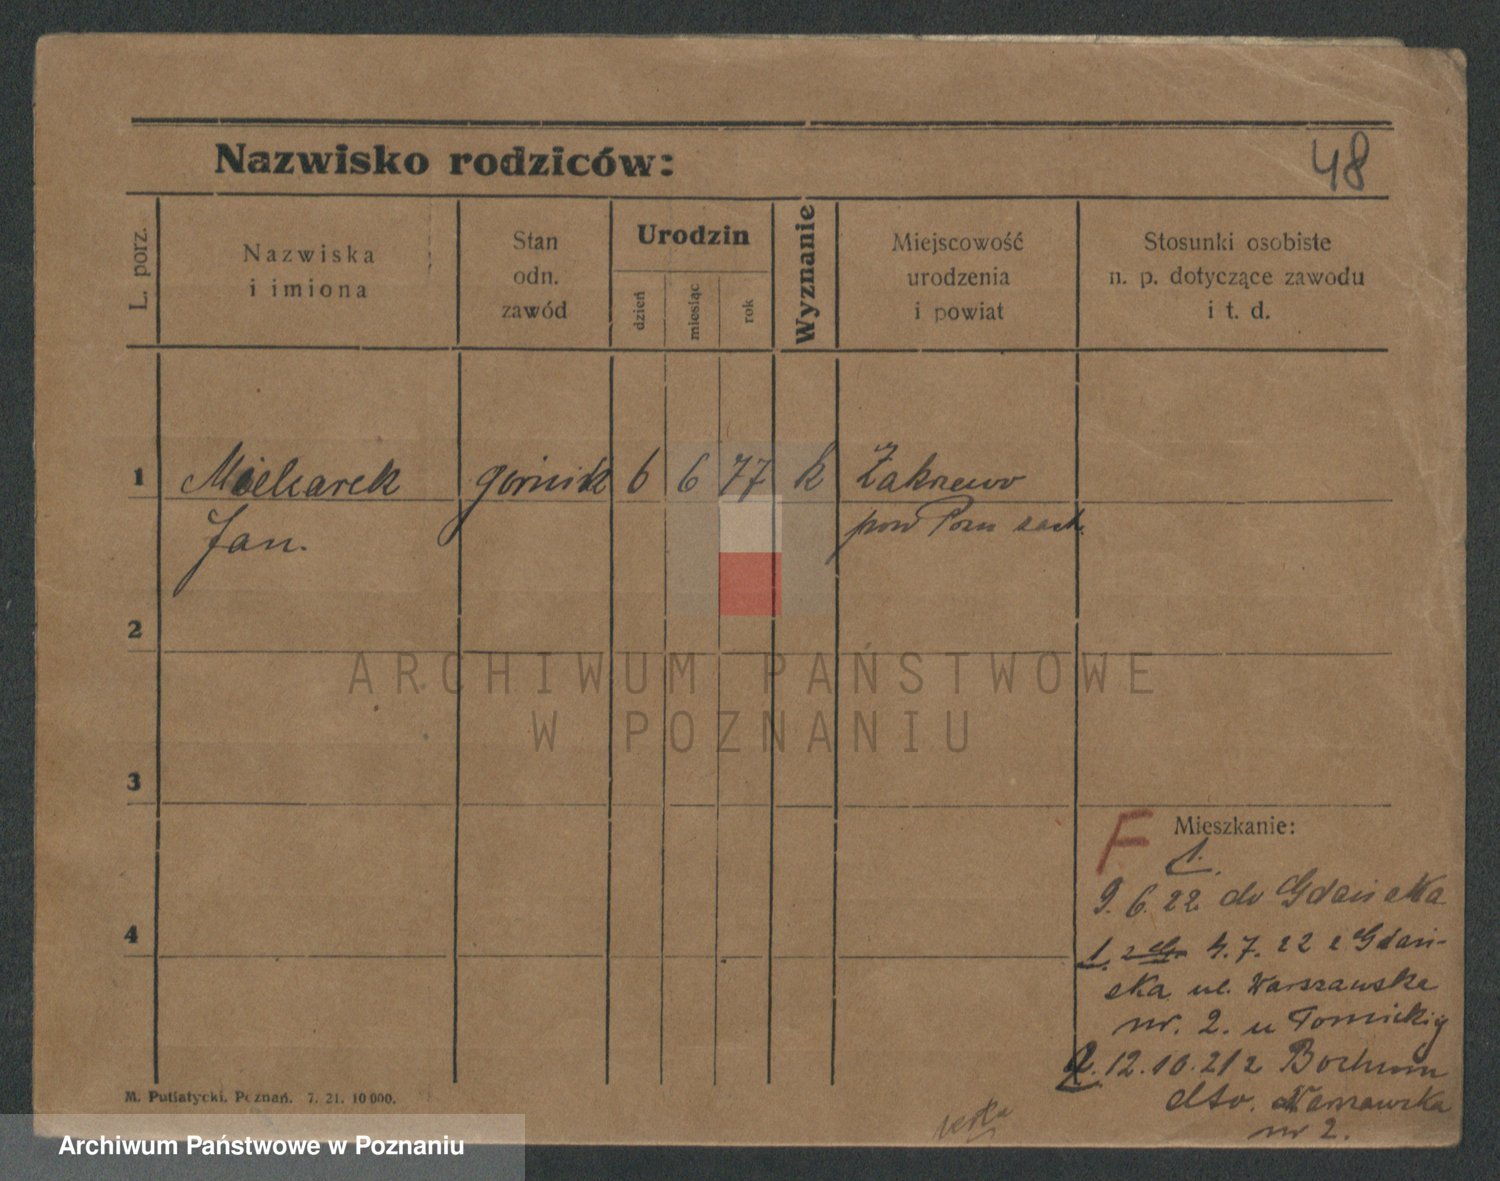 Nazwisko rodziców:
48
L. porz.
Nazwiska
i imiona
Stan
odn.
zawód
Urodzin
dzień
miesiąc
rok
Wyznanie
Miejscowość
urodzenia
i powiat
Stosunki osobiste
n. p. dotyczące zawodu
i t. d.
1 Mielcarek górnik 6 6 77 k Zakrzewo
Jan. pow Pozn zach.
2
ARCHIWUM PAŃSTWOWE
W POZNANIU
3
F Mieszkanie:
1.
9. 6. 22 do Gdańska
4
1. 4. 7. 22 z Gdań-
ska ul. Warszawska
nr. 2. u Tomickiej
2. 12. 10. 21 z Bochum
dto. Warszawska
nr 2.
M. Putiatycki, Poznań. 7. 21. 10 000.
Archiwum Państwowe w Poznaniu